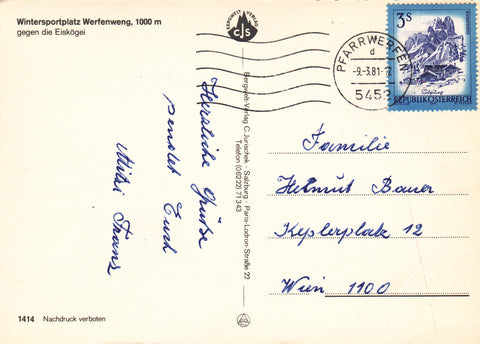 Wintersportplatz Werfenweng, 1000 m
gegen die Eiskögel
BERGWELT VERLAG
CJS
PFARRWERFEN
d
-9.-3.81-
5452
3S
REPUBLIK ÖSTERREICH
Herzliche Grüße
sendet Euch
Mitzi Franz
Bergwelt-Verlag C. Jurischek - Salzburg - Paris-Lodron-Straße 22
Telefon (06222) 71343
Familie
Helmut Bauer
Keplerplatz 12
Wien 1100
1414 Nachdruck verboten